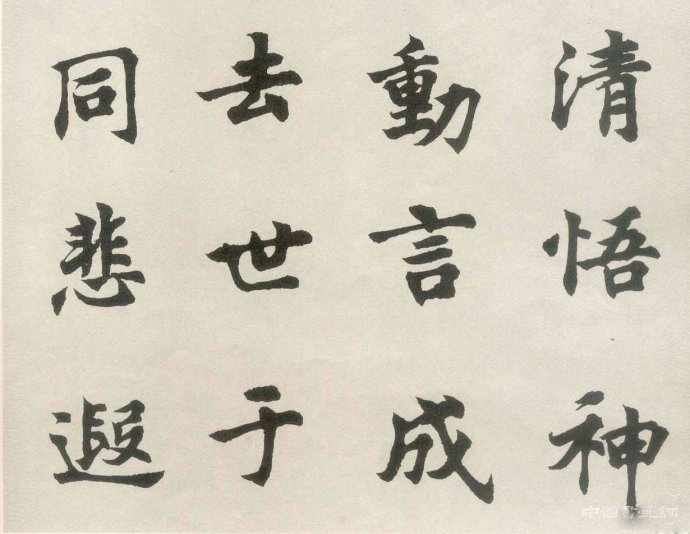 清悟神
動言成
去世于
同悲遐
中国書画網